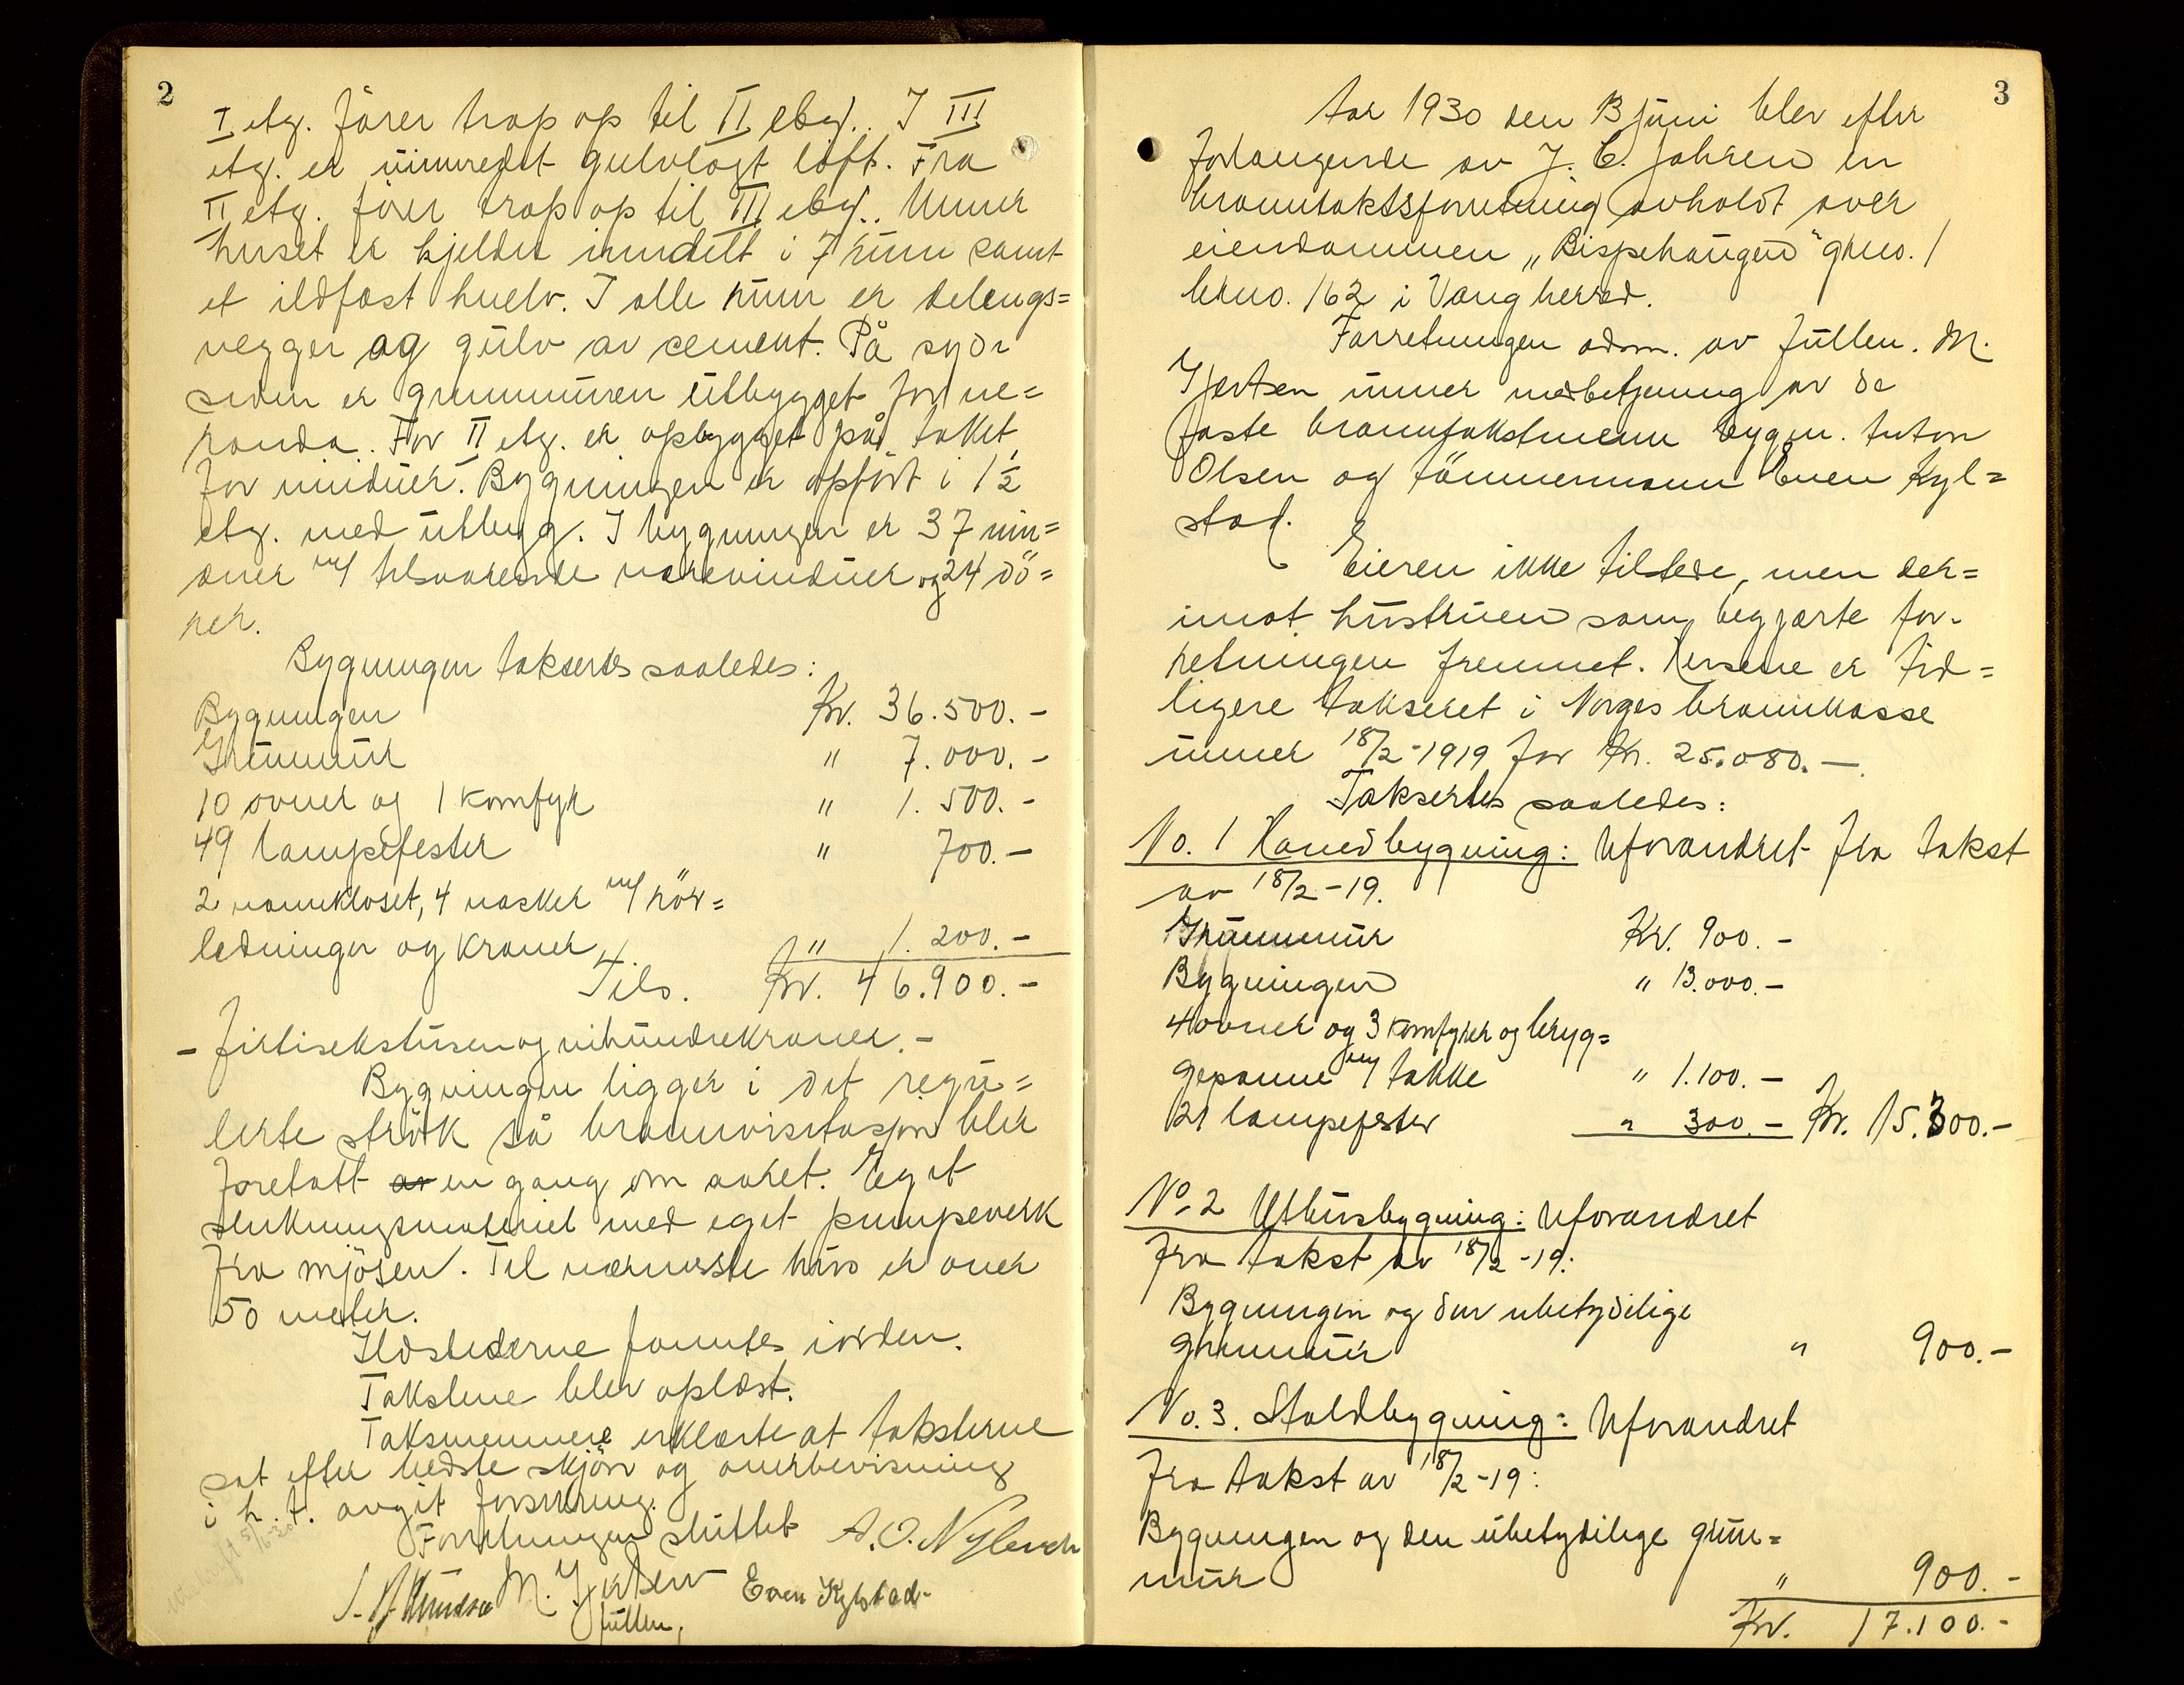 2
I etg. fører trap op til II etag.. I III
etg. er uinnredet gulvlagt loft. Fra
II etg. fører trap op til III etag.. Unner
huset er kjelder inndelt i 7 rum samt
et ildfast hvelv. I alle rum er delengs=
vegger og gulv av cement. På syd
siden er grunnmuren utbygget for ve=
randa. For II etg. er opbygget på taket
for vinduer. Bygningen er opført i 1½
etg. med utbygg. I bygningen er 37 vin=
duer m/ tilsvarende varevinduer og 24 dö=
rer.
Bygningen takseres saaledes:
Bygningen Kr. 36.500.-
Grunnmur " 7.000.-
10 ovner og 1 komfyr " 1.500.-
49 lampefester " 700.-
2 vannkloset, 4 vasker m/ rör=
ledninger og kraner " 1.200.-
Tils. Kr. 46.900.-
- Firtisekstusenognihundrekroner.-
Bygningen ligger i det regu=
lerte strök så brannvisitasjon blir
foretatt av en gang om aaret. Eget
slukningsmateriel med eget pumpeverk
fra mjösen. Til nærmeste hus er over
50 meter.
Ildstederne fanntes iorden.
Takstene blev oplæst.
Taksmennene erklærte at taksterne
sat efter bedste skjön og overbevisning
i h. t. avgit forsikring.
Forretningen sluttet A.O. Nyløvch
M. Gjertsen Even Kylstad
fullm.
3
Aar 1930 den 13 juni blev efter
forlangende av J. C. Johsen en
branntakstsforretning avholdt over
eiendommen „Bispehaugen" grno. 1
brno. 162 i Vang herred.
Forretningen adm. av fullm. M.
Gjertsen unner medbetjening av de
faste branntakstmenn bygm. Anton
Olsen og tömmermann Even Kyl=
stad.
Eieren ikke tilstede, men der=
imot hustruen som begjærte for=
retningen fremmet. Husene er tid=
ligere taksert i Norges brannkasse
unner 18/2-1919 for Kr. 25.080.-
Taksertes saaledes:
No. 1 Hovedbygning: Uforandret fra takst
av 18/2-19.
Grunnmur Kr. 900.-
Bygningen " 13.000.-
4 ovner og 3 komfyrer og bryg=
gepanne m/ takke " 1.100.-
21 lampefester " 300.- Kr. 15.300.-
No 2 Uthusbygning: Uforandret
fra takst av 18/2-19:
Bygningen og den ubetydelige
grunnmur " 900.-
No. 3. Staldbygning: Uforandret
fra takst av 18/2-19:
Bygningen og den ubetydelige grun=
mur " 900.-
Kr. 17.100.-